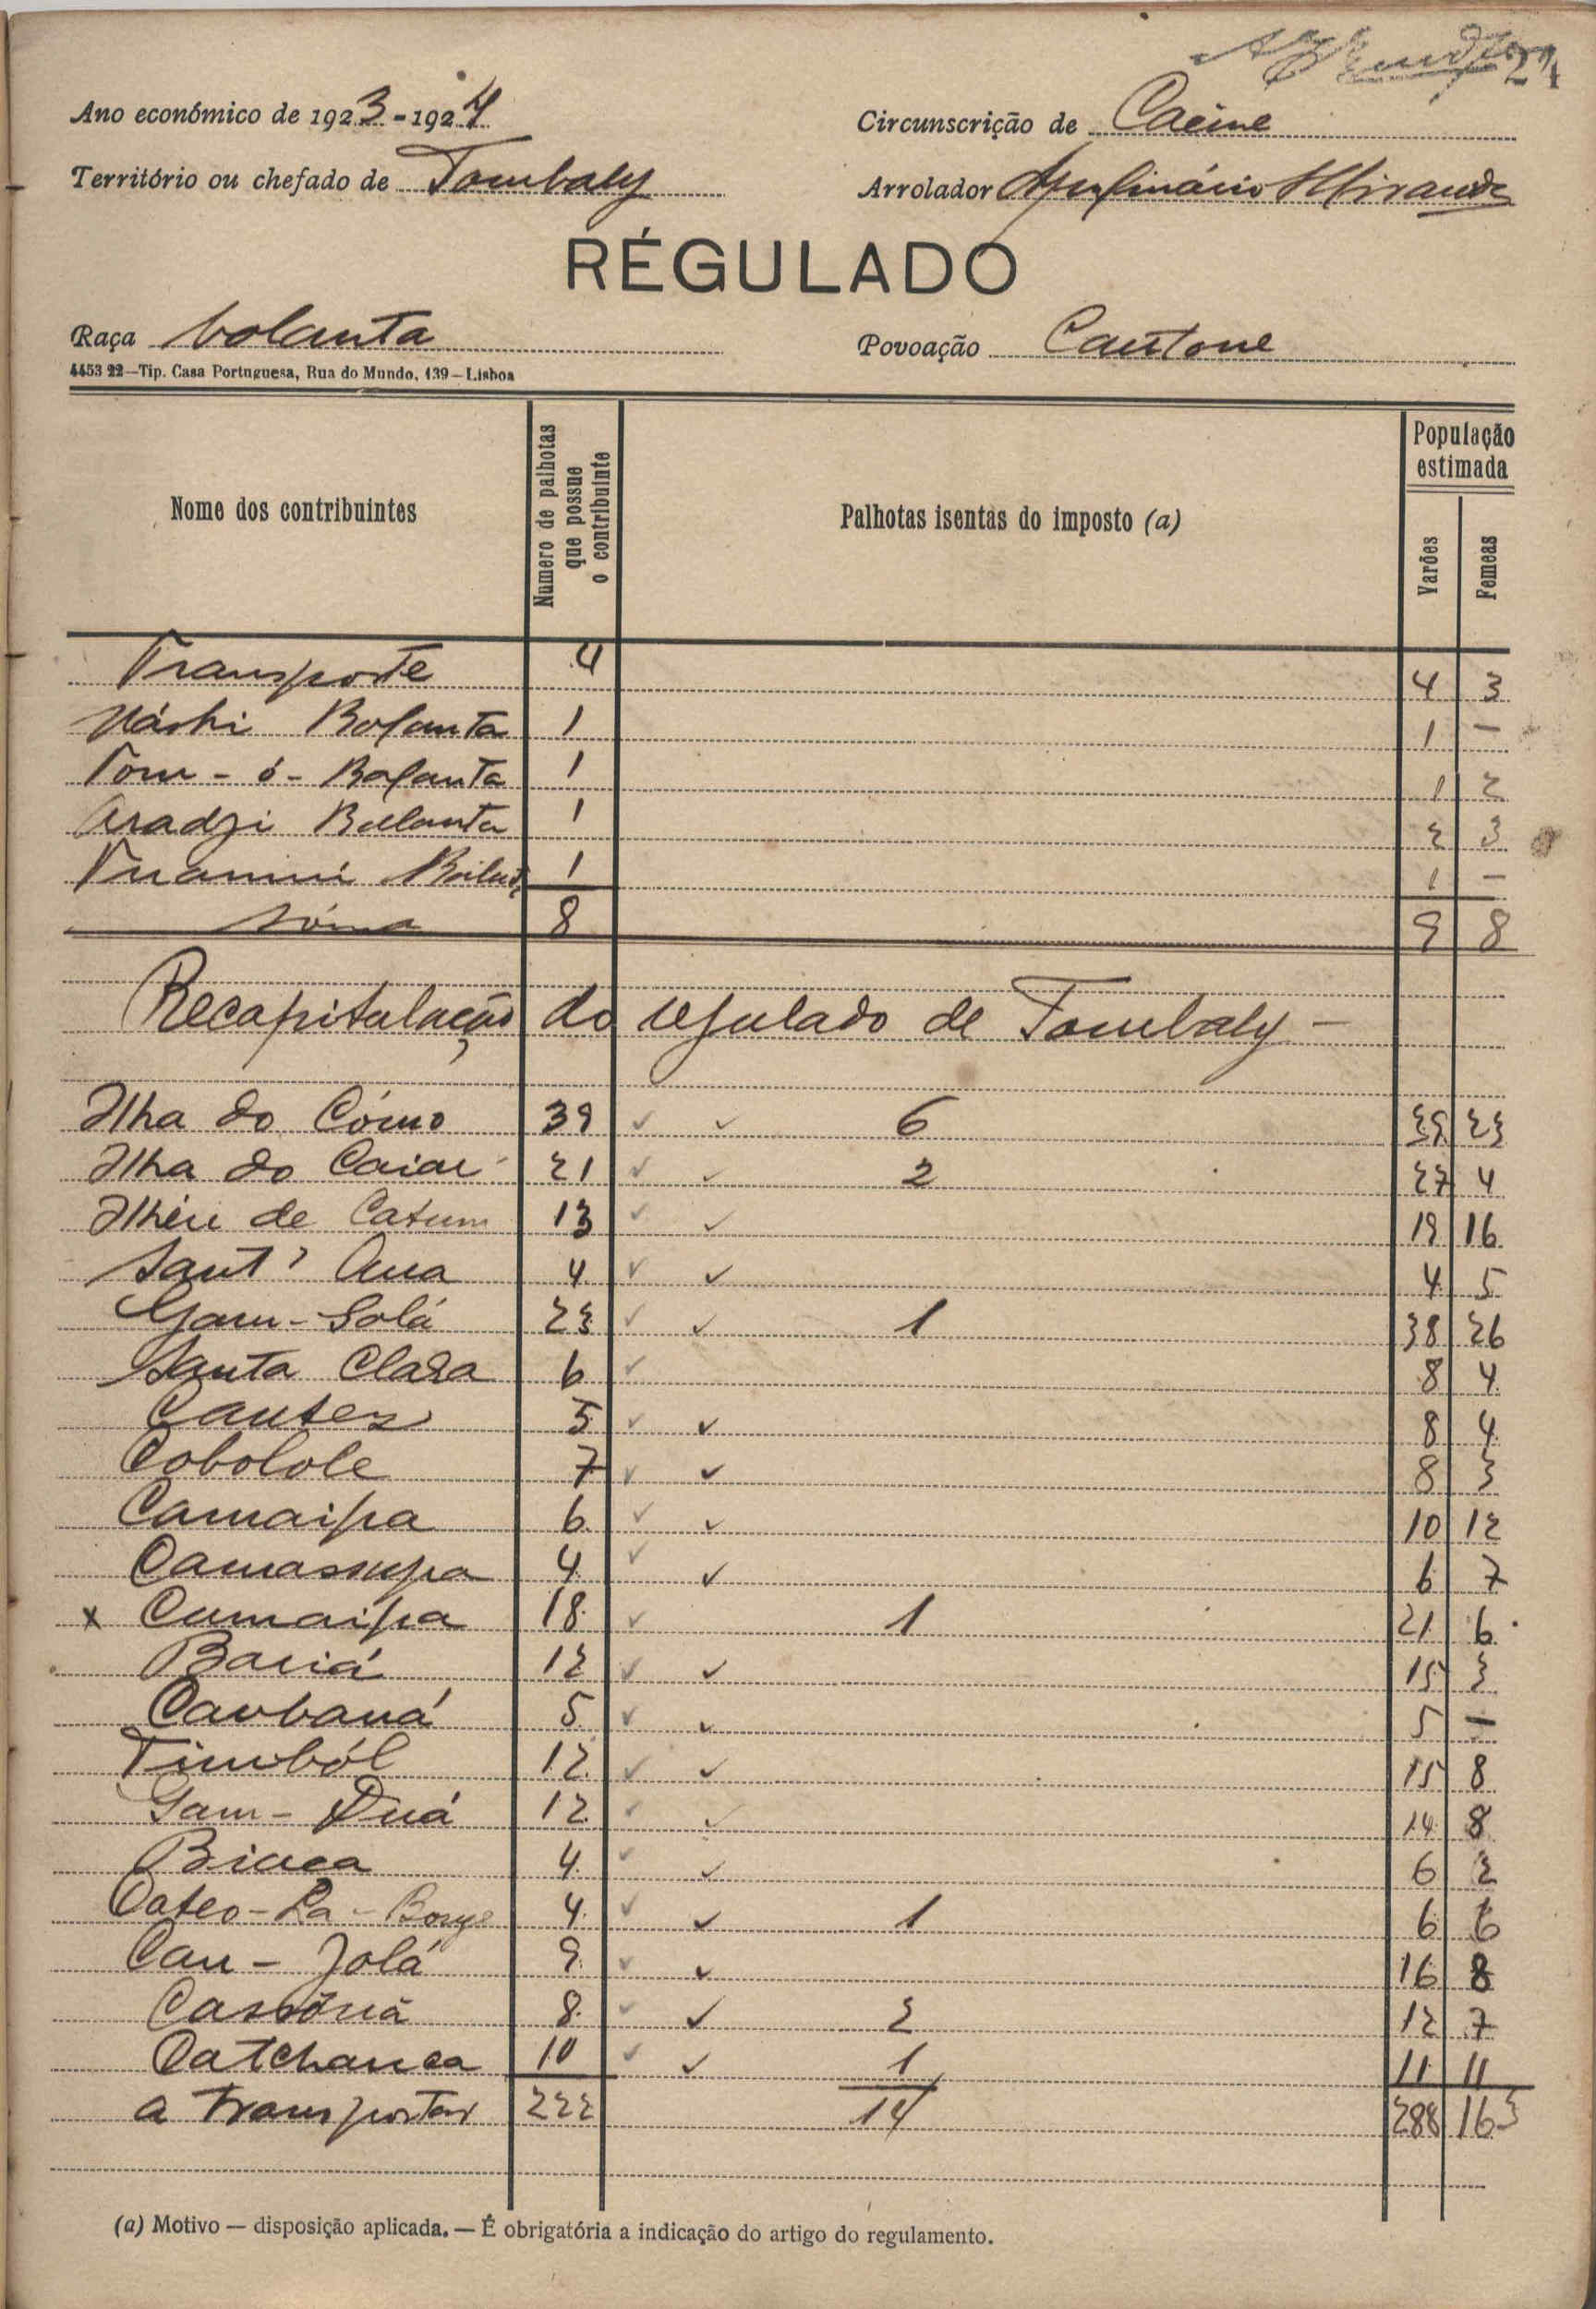 24
Ano económico de 1923-1924
Circunscrição de Cacine
Território ou chefado de Tombaly
Arrolador Apolinário Miranda
RÉGULADO
Raça bolanta
Povoação Cautone
4453 22—Tip. Casa Portuguesa, Rua do Mundo, 139—Lisboa
Nome dos contribuintes
Numero de palhotas que possue o contribuinte
Palhotas isentas do imposto (a)
População estimada
Varões
Femeas
Transporte 4 4 3
Balanta 1 1 —
Tom - ó - Balanta 1 1 2
Aradzi Balanta 1 2 3
1 1 —
Sôma 8 9 8
Recapitulação do regulado de Tombaly —
Ilha do Cómo 39 ✓ ✓ 6 39 23
Ilha do Caiar 21 ✓ ✓ 2 27 4
Ilhéu de Catum 13 ✓ ✓ 19 16
Sant' Ana 4 ✓ ✓ 4 5
Gam - Solá 23 ✓ ✓ 1 38 26
Santa Clara 6 ✓ 8 4
Cautes 5 ✓ ✓ 8 4
Cobolole 7 ✓ ✓ 8 3
Camaipa 6 ✓ ✓ 10 12
Camassupa 4 ✓ ✓ 6 7
x Cumaipa 18 ✓ 1 21 6
Bariá 12 ✓ ✓ 15 3
Caubaná 5 ✓ ✓ 5 —
Timból 12 ✓ ✓ 15 8
Gam - Duá 12 ✓ ✓ 14 8
4 ✓ ✓ 6 2
Cateo - La - 4 ✓ ✓ 1 6 6
Cau - Jolá 9 ✓ ✓ 16 8
8 ✓ ✓ 2 12 7
Catchanca 10 ✓ ✓ 1 11 11
a transportar 222 14 288 163
(a) Motivo — disposição aplicada. — É obrigatória a indicação do artigo do regulamento.